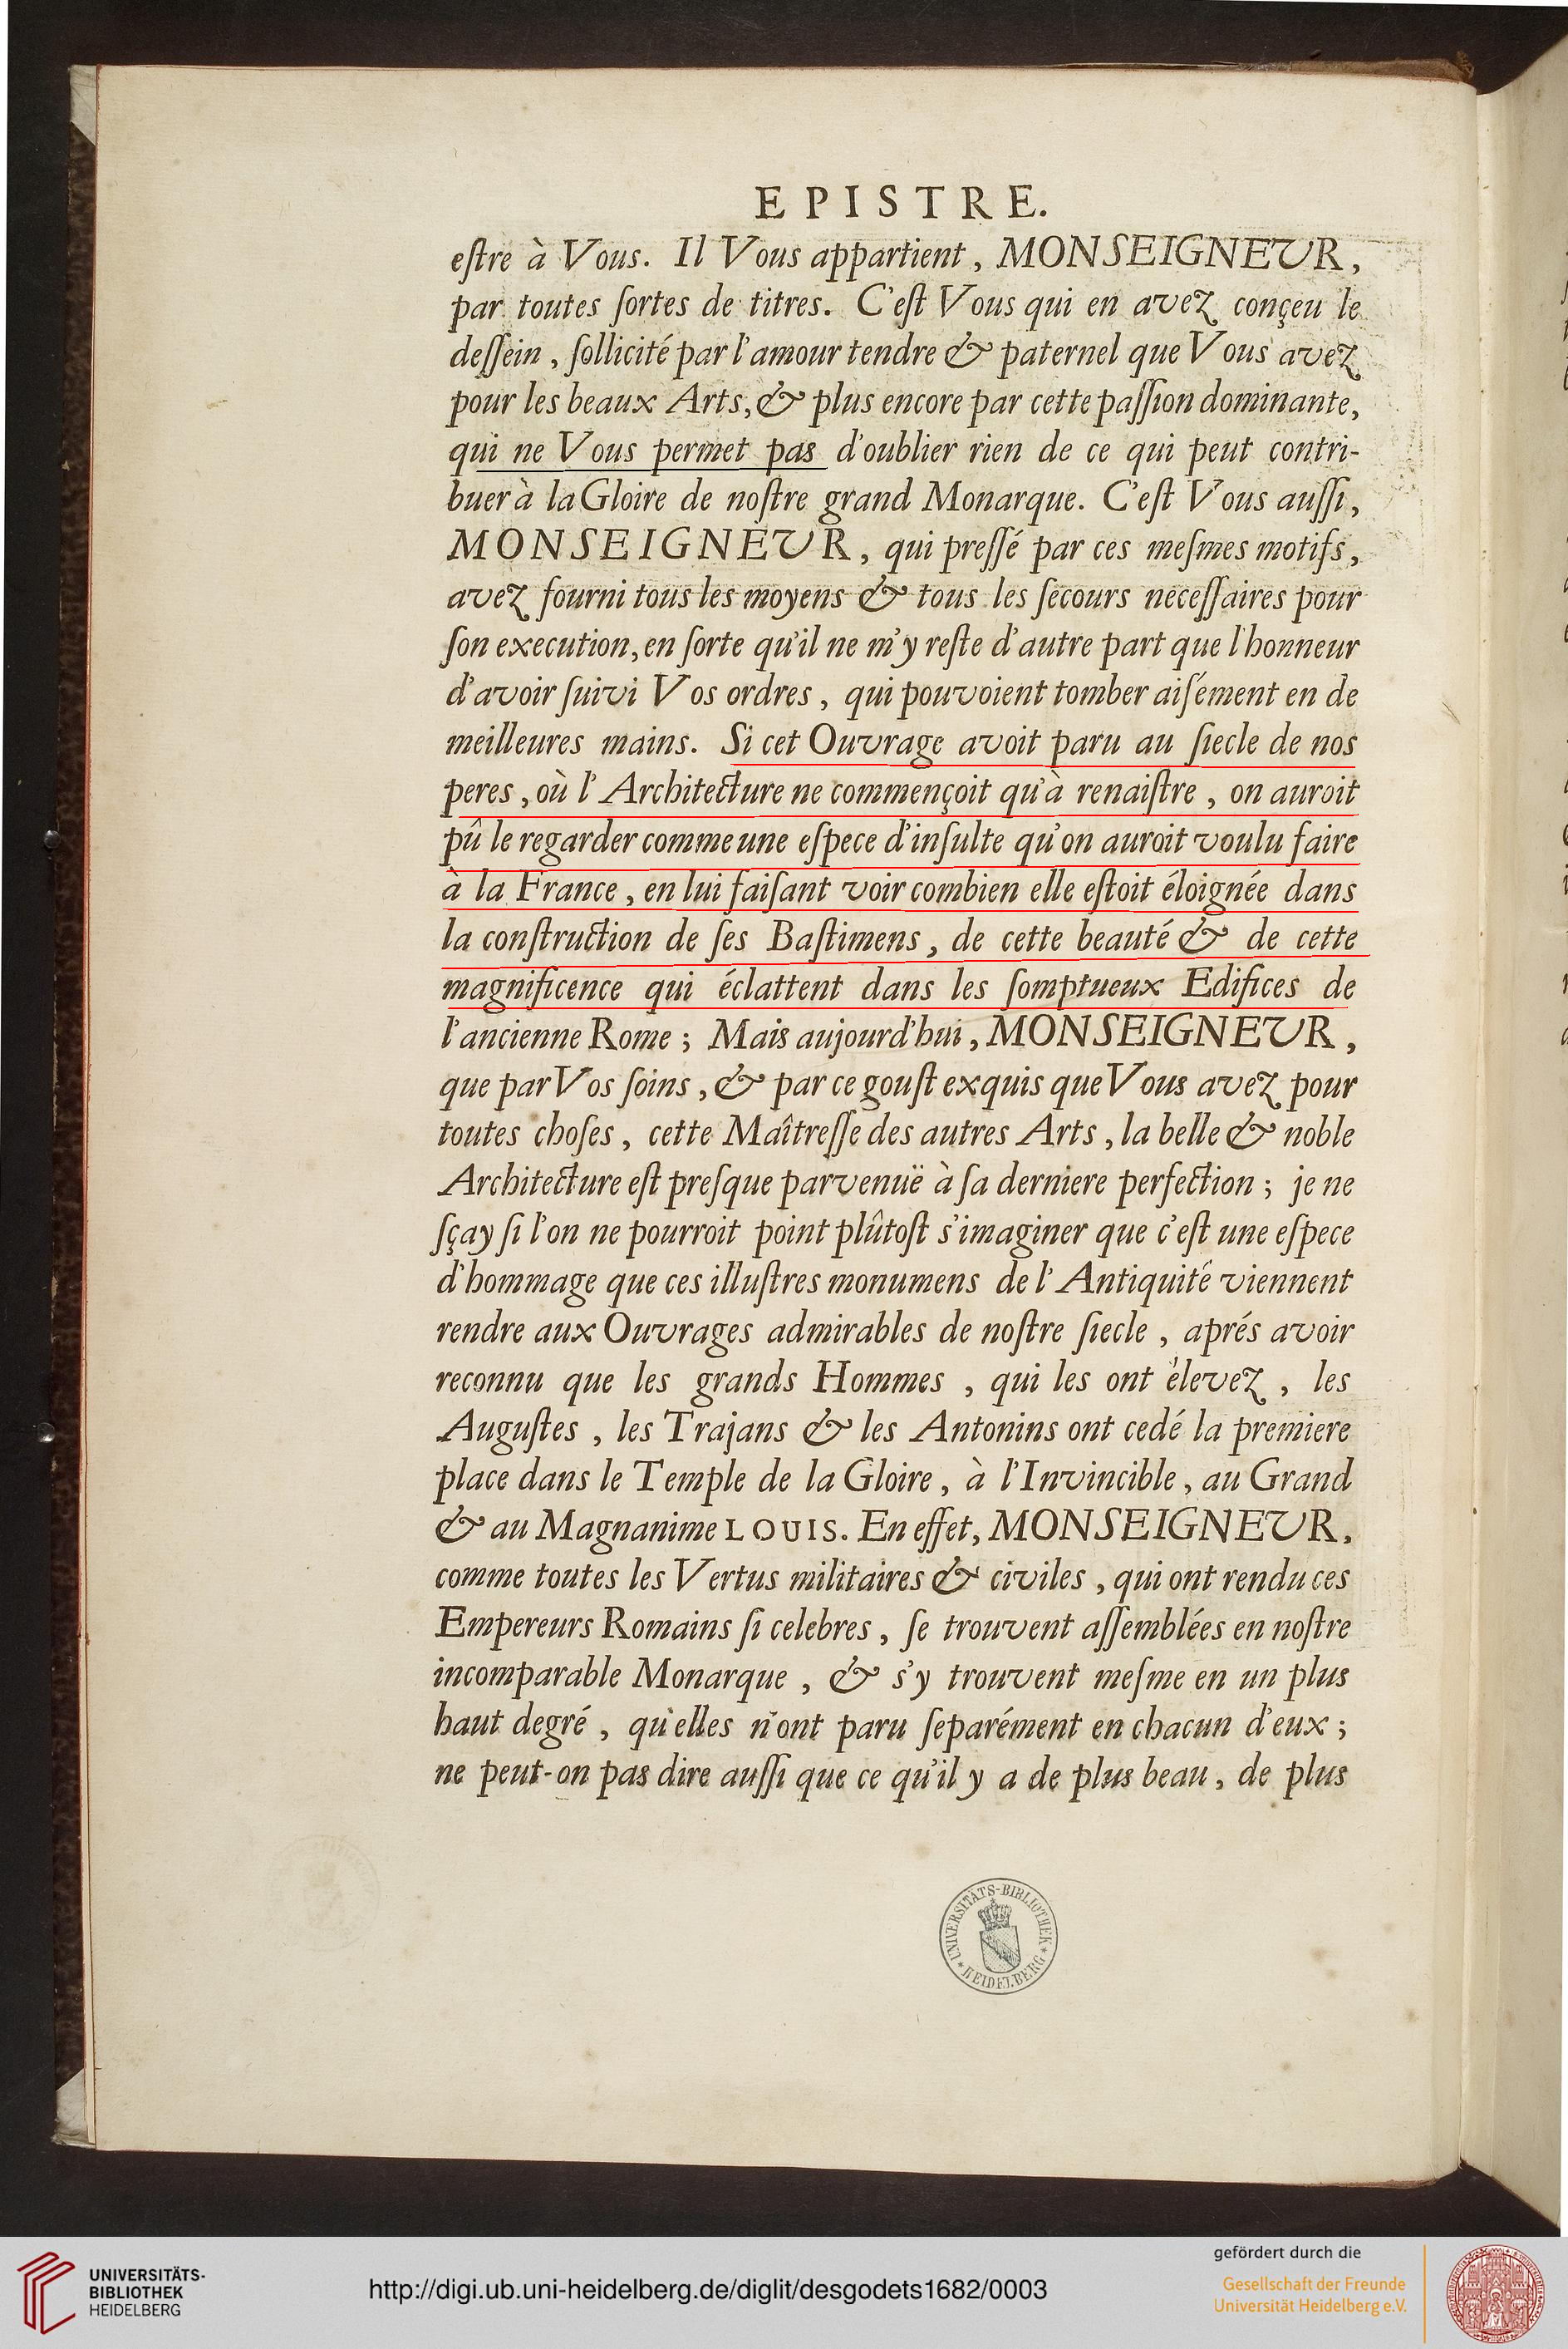 EPISTRE.
eſtre à Vous. Il Vous appartient, MONSEIGNEUR,
par toutes ſortes de titres. C'eſt Vous qui en avez conçeu le
deſſein, ſollicité par l'amour tendre & paternel que Vous avez
pour les beaux Arts, & plus encore par cette paſſion dominante,
qui ne Vous permet pas d'oublier rien de ce qui peut contri-
buer à la Gloire de noſtre grand Monarque. C'eſt Vous auſſi,
MONSEIGNEUR, qui preſſé par ces meſmes motifs,
avez fourni tous les moyens & tous les ſecours neceſſaires pour
ſon execution, en ſorte qu'il ne m'y reſte d'autre part que l'honneur
d'avoir ſuivi Vos ordres, qui pouvoient tomber aiſément en de
meilleures mains. Si cet Ouvrage avoit paru au ſiecle de nos
peres, où l'Architecture ne commençoit qu'à renaiſtre, on auroit
pû le regarder comme une eſpece d'inſulte qu'on auroit voulu faire
à la France, en lui faiſant voir combien elle eſtoit éloignée dans
la conſtruction de ſes Baſtimens, de cette beauté & de cette
magnificence qui éclattent dans les ſomptueux Edifices de
l'ancienne Rome; Mais aujourd'hui, MONSEIGNEUR,
que par Vos ſoins, & par ce gouſt exquis que Vous avez pour
toutes choſes, cette Maîtreſſe des autres Arts, la belle & noble
Architecture eſt preſque parvenuë à ſa derniere perfection; je ne
ſçay ſi l'on ne pourroit point plûtoſt s'imaginer que c'eſt une eſpece
d'hommage que ces illuſtres monumens de l'Antiquité viennent
rendre aux Ouvrages admirables de noſtre ſiecle, aprés avoir
reconnu que les grands Hommes, qui les ont élevez, les
Auguſtes, les Trajans & les Antonins ont cedé la premiere
place dans le Temple de la Gloire, à l'Invincible, au Grand
& au Magnanime LOUIS. En effet, MONSEIGNEUR,
comme toutes les Vertus militaires & civiles, qui ont rendu ces
Empereurs Romains ſi celebres, ſe trouvent aſſemblées en noſtre
incomparable Monarque, & s'y trouvent meſme en un plus
haut degré, qu'elles n'ont paru ſeparément en chacun d'eux;
ne peut-on pas dire auſſi que ce qu'il y a de plus beau, de plus
UNIVERSITÄTS-BIBLIOTHEK
* HEIDELBERG *
UNIVERSITÄTS-
BIBLIOTHEK
HEIDELBERG
http://digi.ub.uni-heidelberg.de/diglit/desgodets1682/0003
gefördert durch die
Gesellschaft der Freunde
Universität Heidelberg e.V.